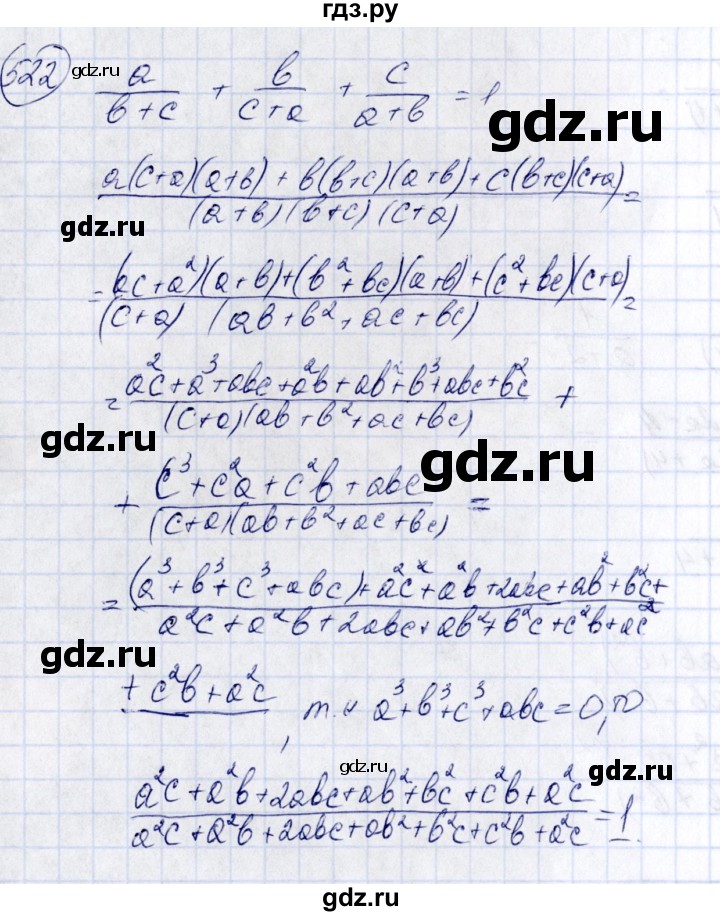 гдз.ру
522 gdz.ru
a/(b+c) + b/(c+a) + c/(a+b) = 1
gdz.ru
(a(c+a)(a+b) + b(b+c)(a+b) + c(b+c)(c+a))/((a+b)(b+c)(c+a)) =
gdz.ru
= ((ac+a²)(a+b)+(b²+bc)(a+b)+(c²+bc)(c+a))/((c+a)(ab+b²+ac+bc)) =
= (a²c+a³+abc+a²b+ab²+b³+abc+b²c)/((c+a)(ab+b²+ac+bc)) +
gdz.ru
+ (c³+c²a+c²b+abc)/((c+a)(ab+b²+ac+bc)) =
gdz.ru
= (a³+b³+c³+abc)+a²c+a²b+2abc+ab²+b²c+
a²c+a²b+2abc+ab²+b²c+c²b+ac²
gdz.ru
+c²b+a²c, т.к a³+b³+c³+abc=0, то
gdz.ru
(a²c+a²b+2abc+ab²+bc²+c²b+ac²)/(a²c+a²b+2abc+ab²+b²c+c²b+ac²) = 1.
gdz.ru
gdz.ru